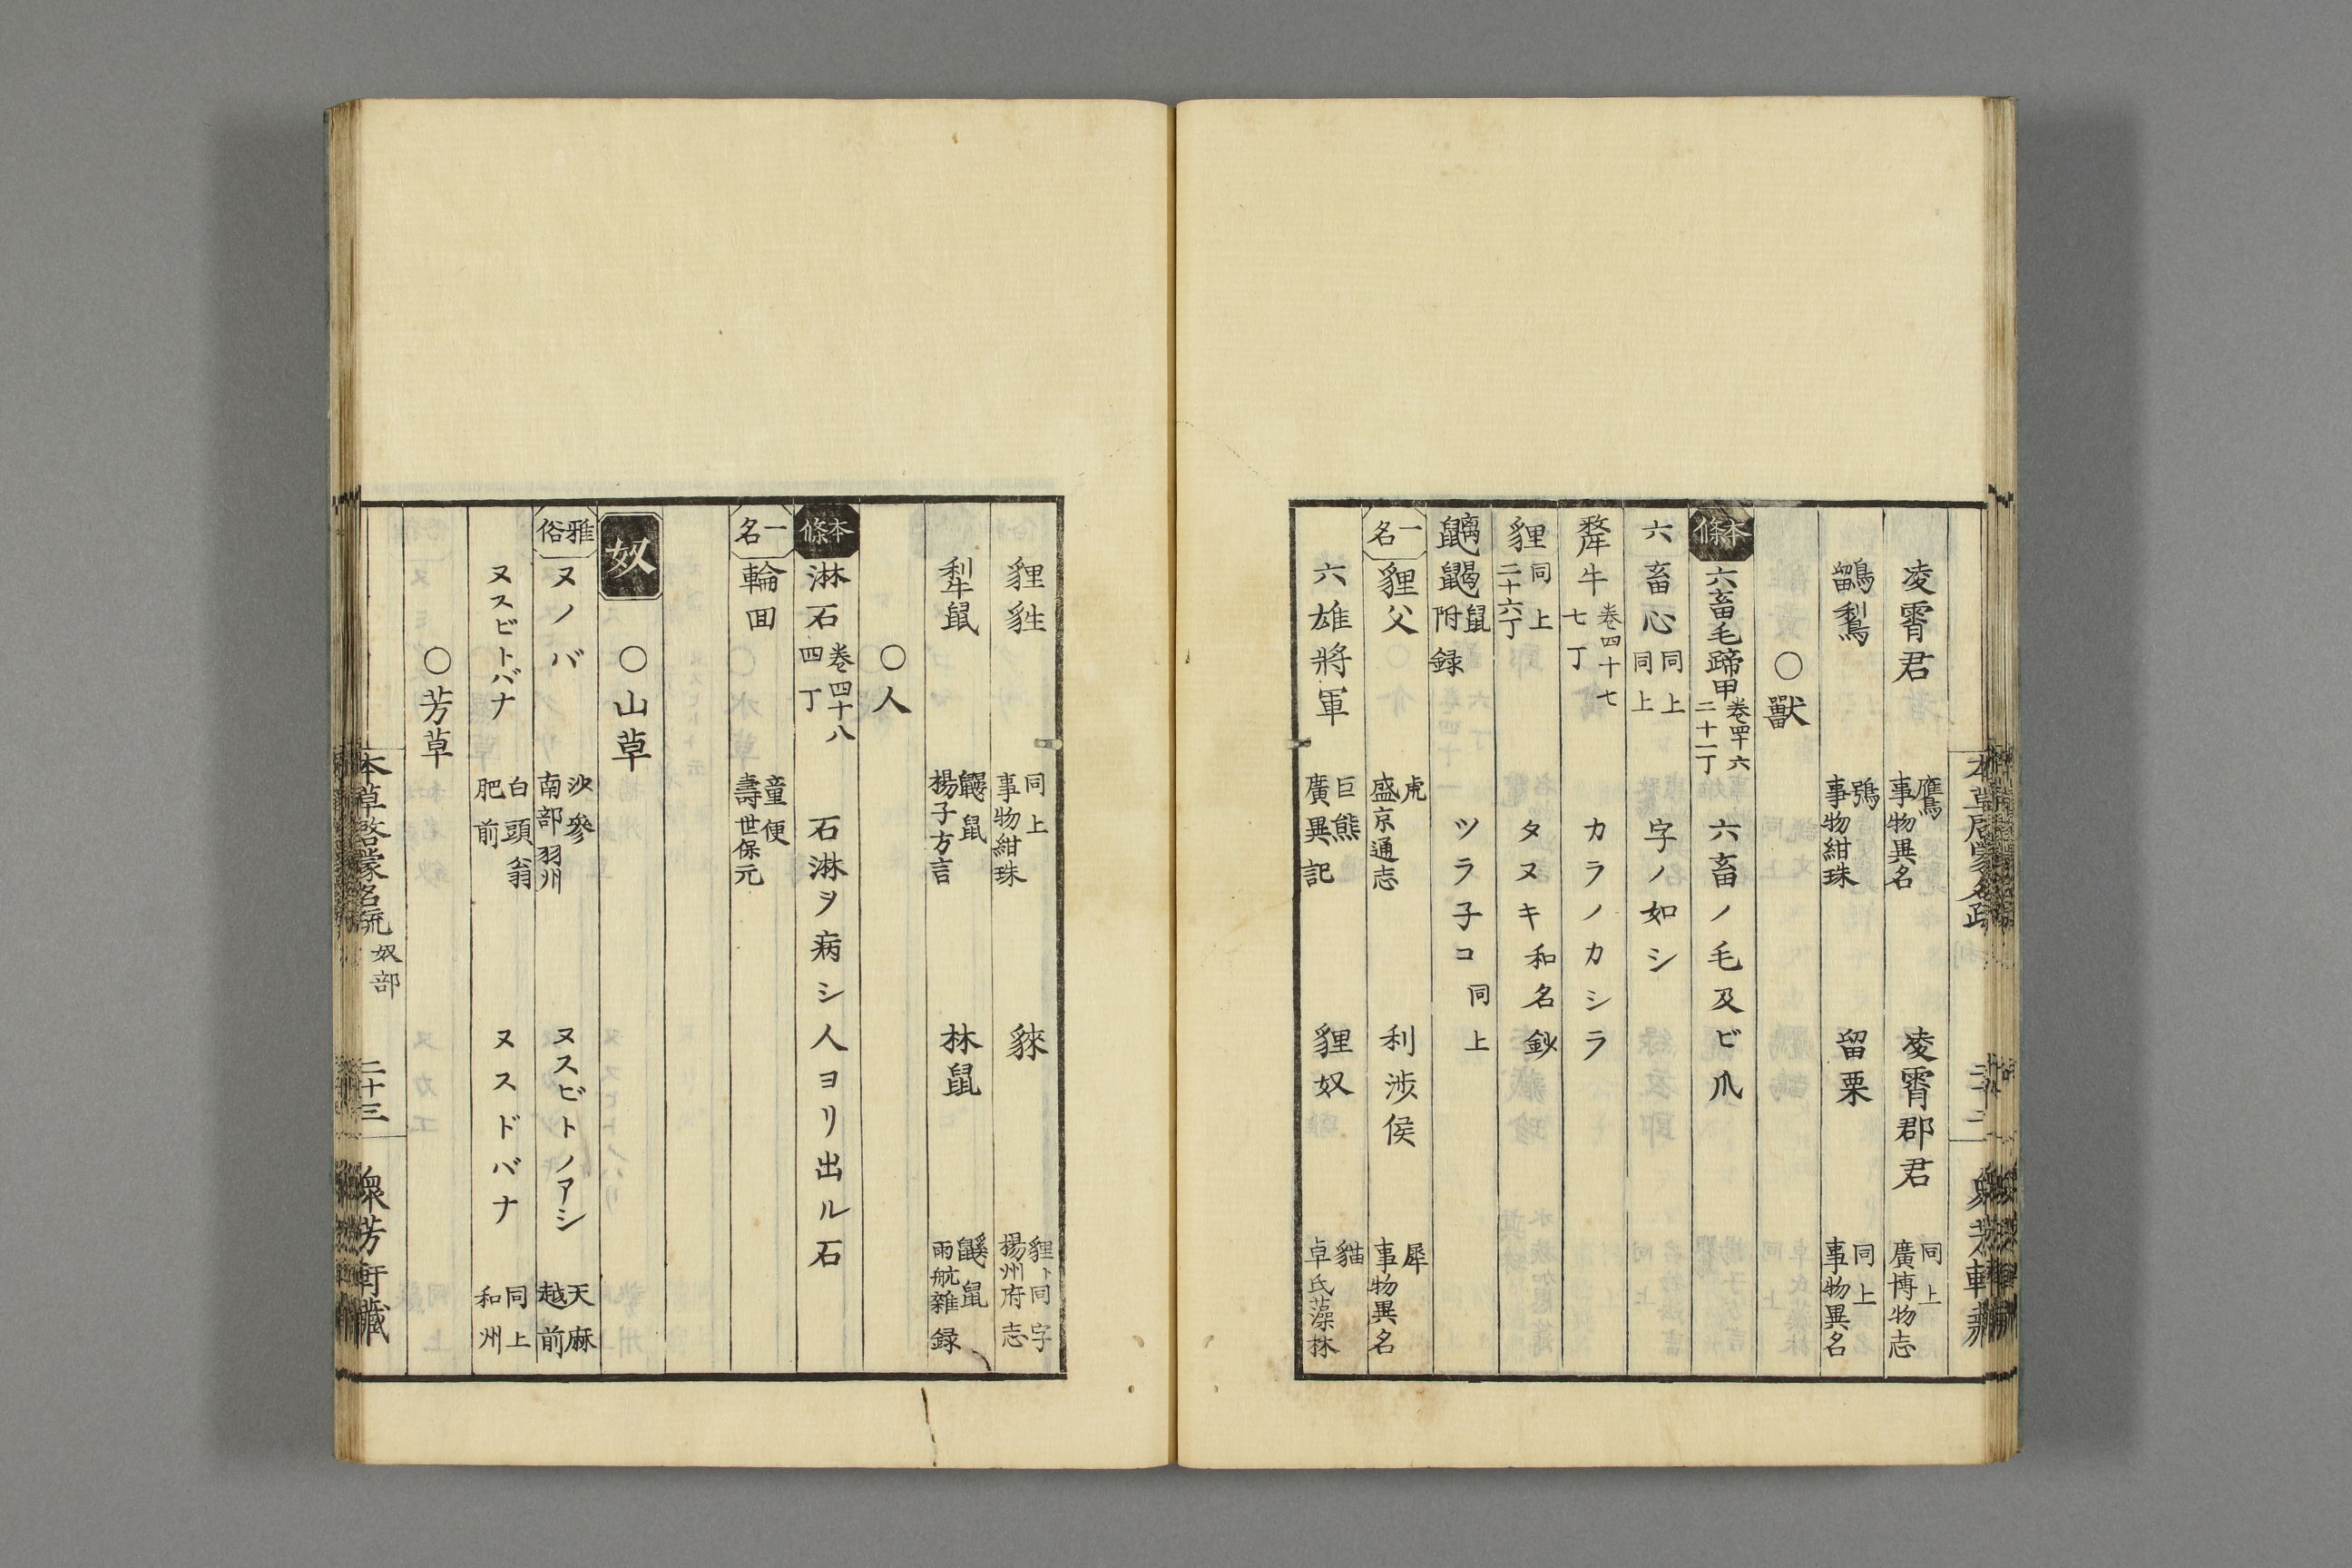 凌霄君 鷹 事物異名 凌霄郡君 同上 廣博物志
鶹鷅 鴞 事物紺珠 留栗 同上 事物異名
○獸
本條 六畜毛蹄甲 卷四十六 二十一丁 六畜ノ毛及ビ爪
六畜心 同上 同上 字ノ如シ
犛牛 卷四十七 七丁 カラノカシラ
貍 同上 二十六丁 タヌキ 和名鈔
鼠 附録 ツラ子コ 同上
一名 貍父 虎 盛京通志 利渉侯 犀 事物異名
六雄將軍 巨熊 廣異記 貍奴 貓 卓氏藻林
貍狌 同上 事物紺珠 貅 貍ト同字 揚州府志
犁鼠 鼴鼠 揚子方言 林鼠 鼷鼠 雨航雜録
○人
本條 淋石 卷四十八 四丁 石淋ヲ病シ人ヨリ出ル石
一名 輪回 童便 壽世保元
奴 ○山草
雅俗 ヌノバ 沙參 南部 羽州 ヌスビトノアシ 天麻 越前
ヌスビトバナ 白頭翁 肥前 ヌスドバナ 同上 和州
○芳草
本草啓蒙名疏 奴部 二十三 衆芳軒藏